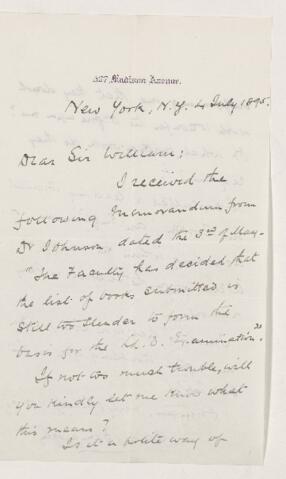 327 Madison Avenue.
New York, N.Y. 4 July 1895.
Dear Sir William;
I received the
following memorandum from
Dr Johnson, dated the 3rd of May-
"The Faculty has decided that
the list of books submitted is
still too slender to form the
basis for the LL. D. Examination."
If not too much trouble, will
you kindly let me know what
this means?
Is it a polite way of